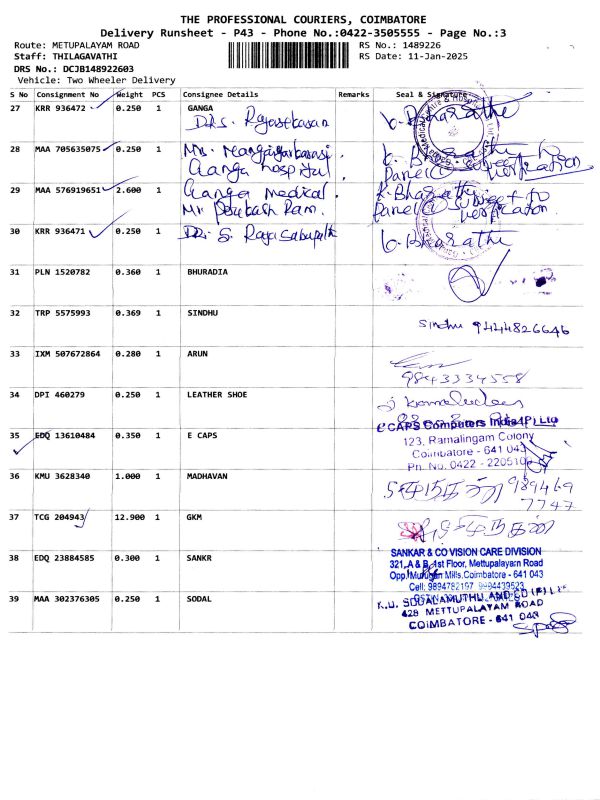 THE PROFESSIONAL COURIERS, COIMBATORE
Delivery Runsheet - P43 - Phone No.:0422-3505555 - Page No.:3
Route: METUPALAYAM ROAD RS No.: 1489226
Staff: THILAGAVATHI RS Date: 11-Jan-2025
DRS No.: DCJB148922603
Vehicle: Two Wheeler Delivery
S No Consignment No Weight PCS Consignee Details Remarks Seal & Signature
27 KRR 936472 0.250 1 GANGA
b. Bharathe
28 MAA 705635075 0.250 1
Ganga hospital
29 MAA 576919651 2.600 1 Ganga medical.
K. Bharathe
Panel @ subject to
verification
30 KRR 936471 0.250 1
b. Bharathe
31 PLN 1520782 0.360 1 BHURADIA
32 TRP 5575993 0.369 1 SINDHU
Sindhu 9444826646
33 IXM 507672864 0.280 1 ARUN
9843334558
34 DPI 460279 0.250 1 LEATHER SHOE
35 EDQ 13610484 0.350 1 E CAPS
eCAPS Computers India (P) Ltd
123, Ramalingam Colony
Coimbatore - 641 043
Ph. No. 0422 - 2205102
36 KMU 3628340 1.000 1 MADHAVAN
989469
7747
37 TCG 204943 12.900 1 GKM
38 EDQ 23884585 0.300 1 SANKR
SANKAR & CO VISION CARE DIVISION
321, A & B, 1st Floor, Mettupalayam Road
Opp. Murugan Mills, Coimbatore - 641 043
39 MAA 302376305 0.250 1 SODAL
428 METTUPALAYAM ROAD
COIMBATORE - 641 043